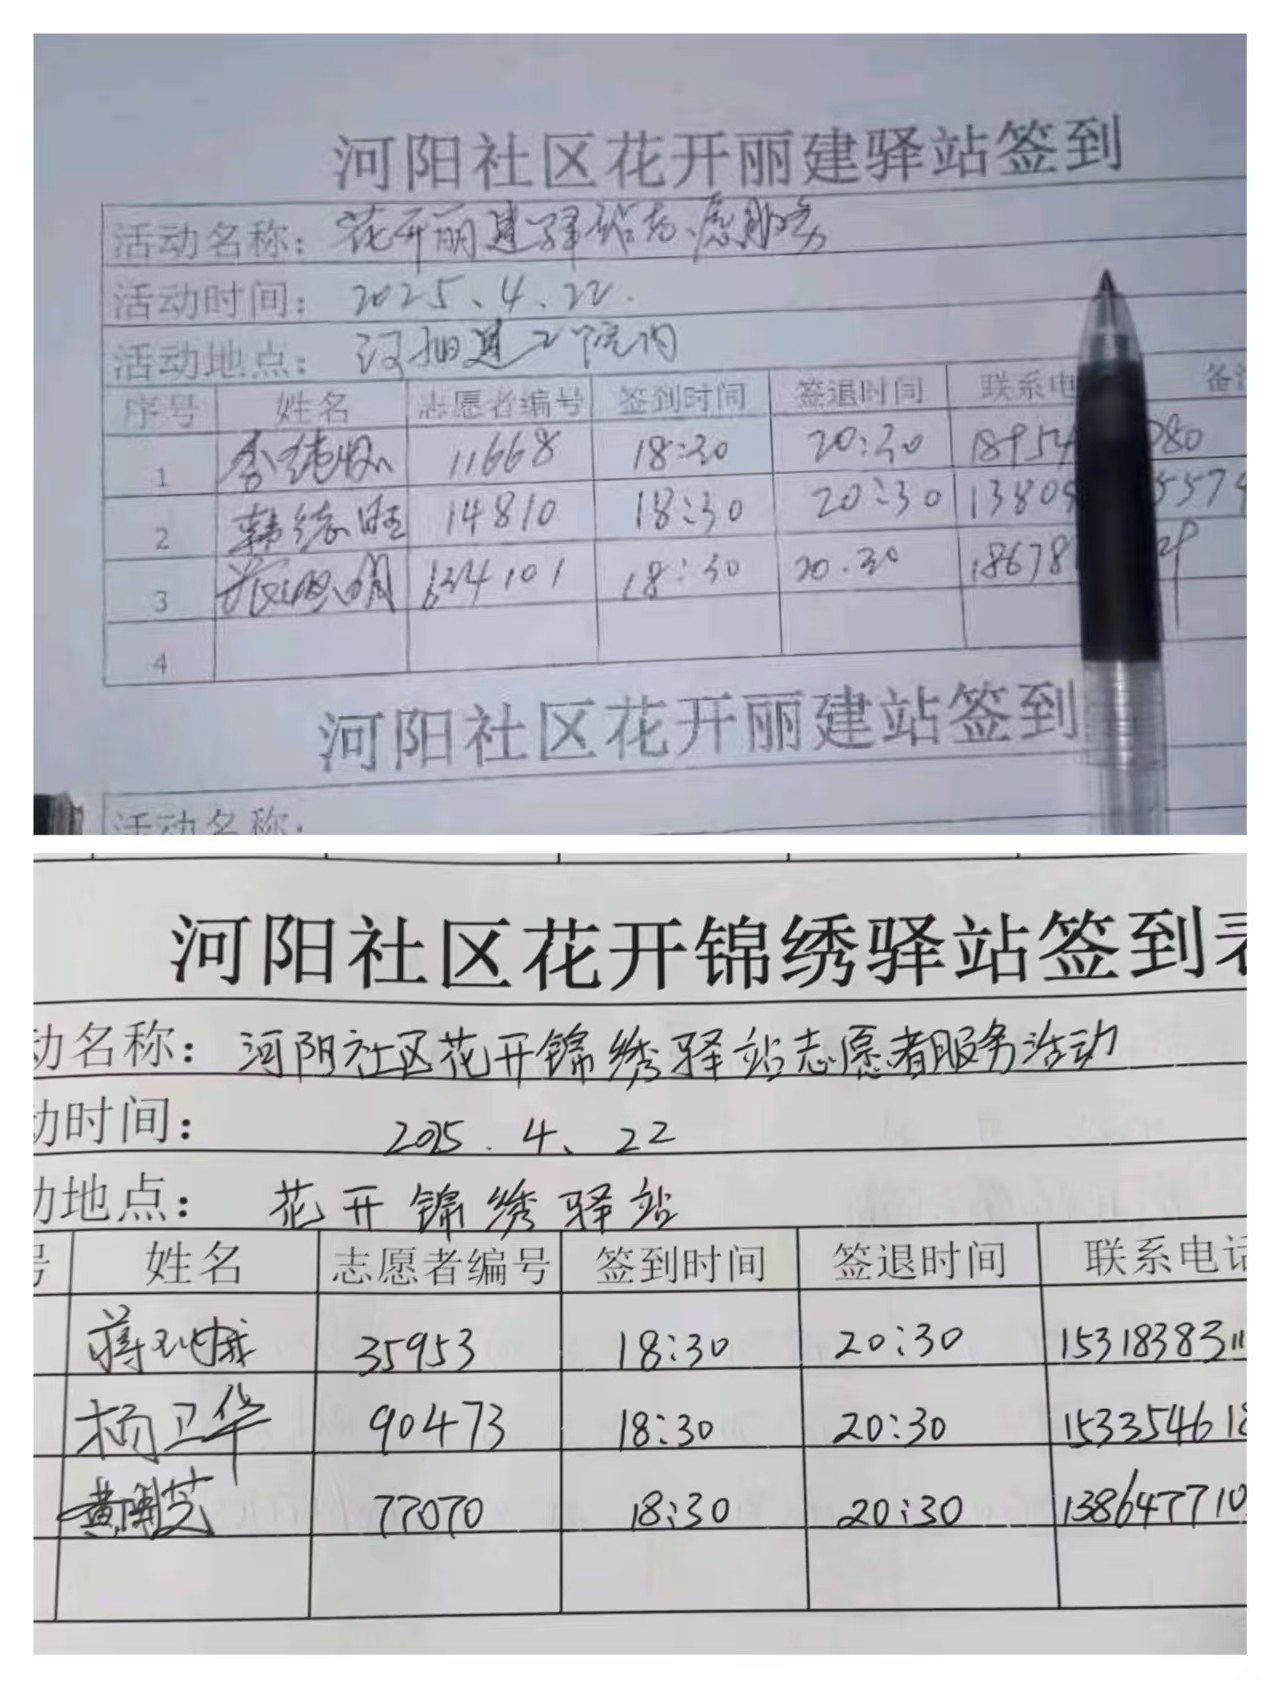 河阳社区花开丽建驿站签到
活动名称：花开丽建驿站志愿服务
活动时间：2025、4、22.
活动地点：建工院内
序号 姓名 志愿者编号 签到时间 签退时间 联系电
1 11668 18:30 20:30 18954 080
2 韩绪旺 14810 18:30 20:30 13809 5574
3 634101 18:30 20.30 18678
4
河阳社区花开丽建站签到
活动名称：
河阳社区花开锦绣驿站签到表
动名称：河阳社区花开锦绣驿站志愿者服务活动
动时间：2025.4、22
动地点：花开锦绣驿站
号 姓名 志愿者编号 签到时间 签退时间 联系电话
35953 18:30 20:30 15318383111
杨卫华 90473 18:30 20:30 153354618
黄闺芝 77070 18:30 20:30 138647710